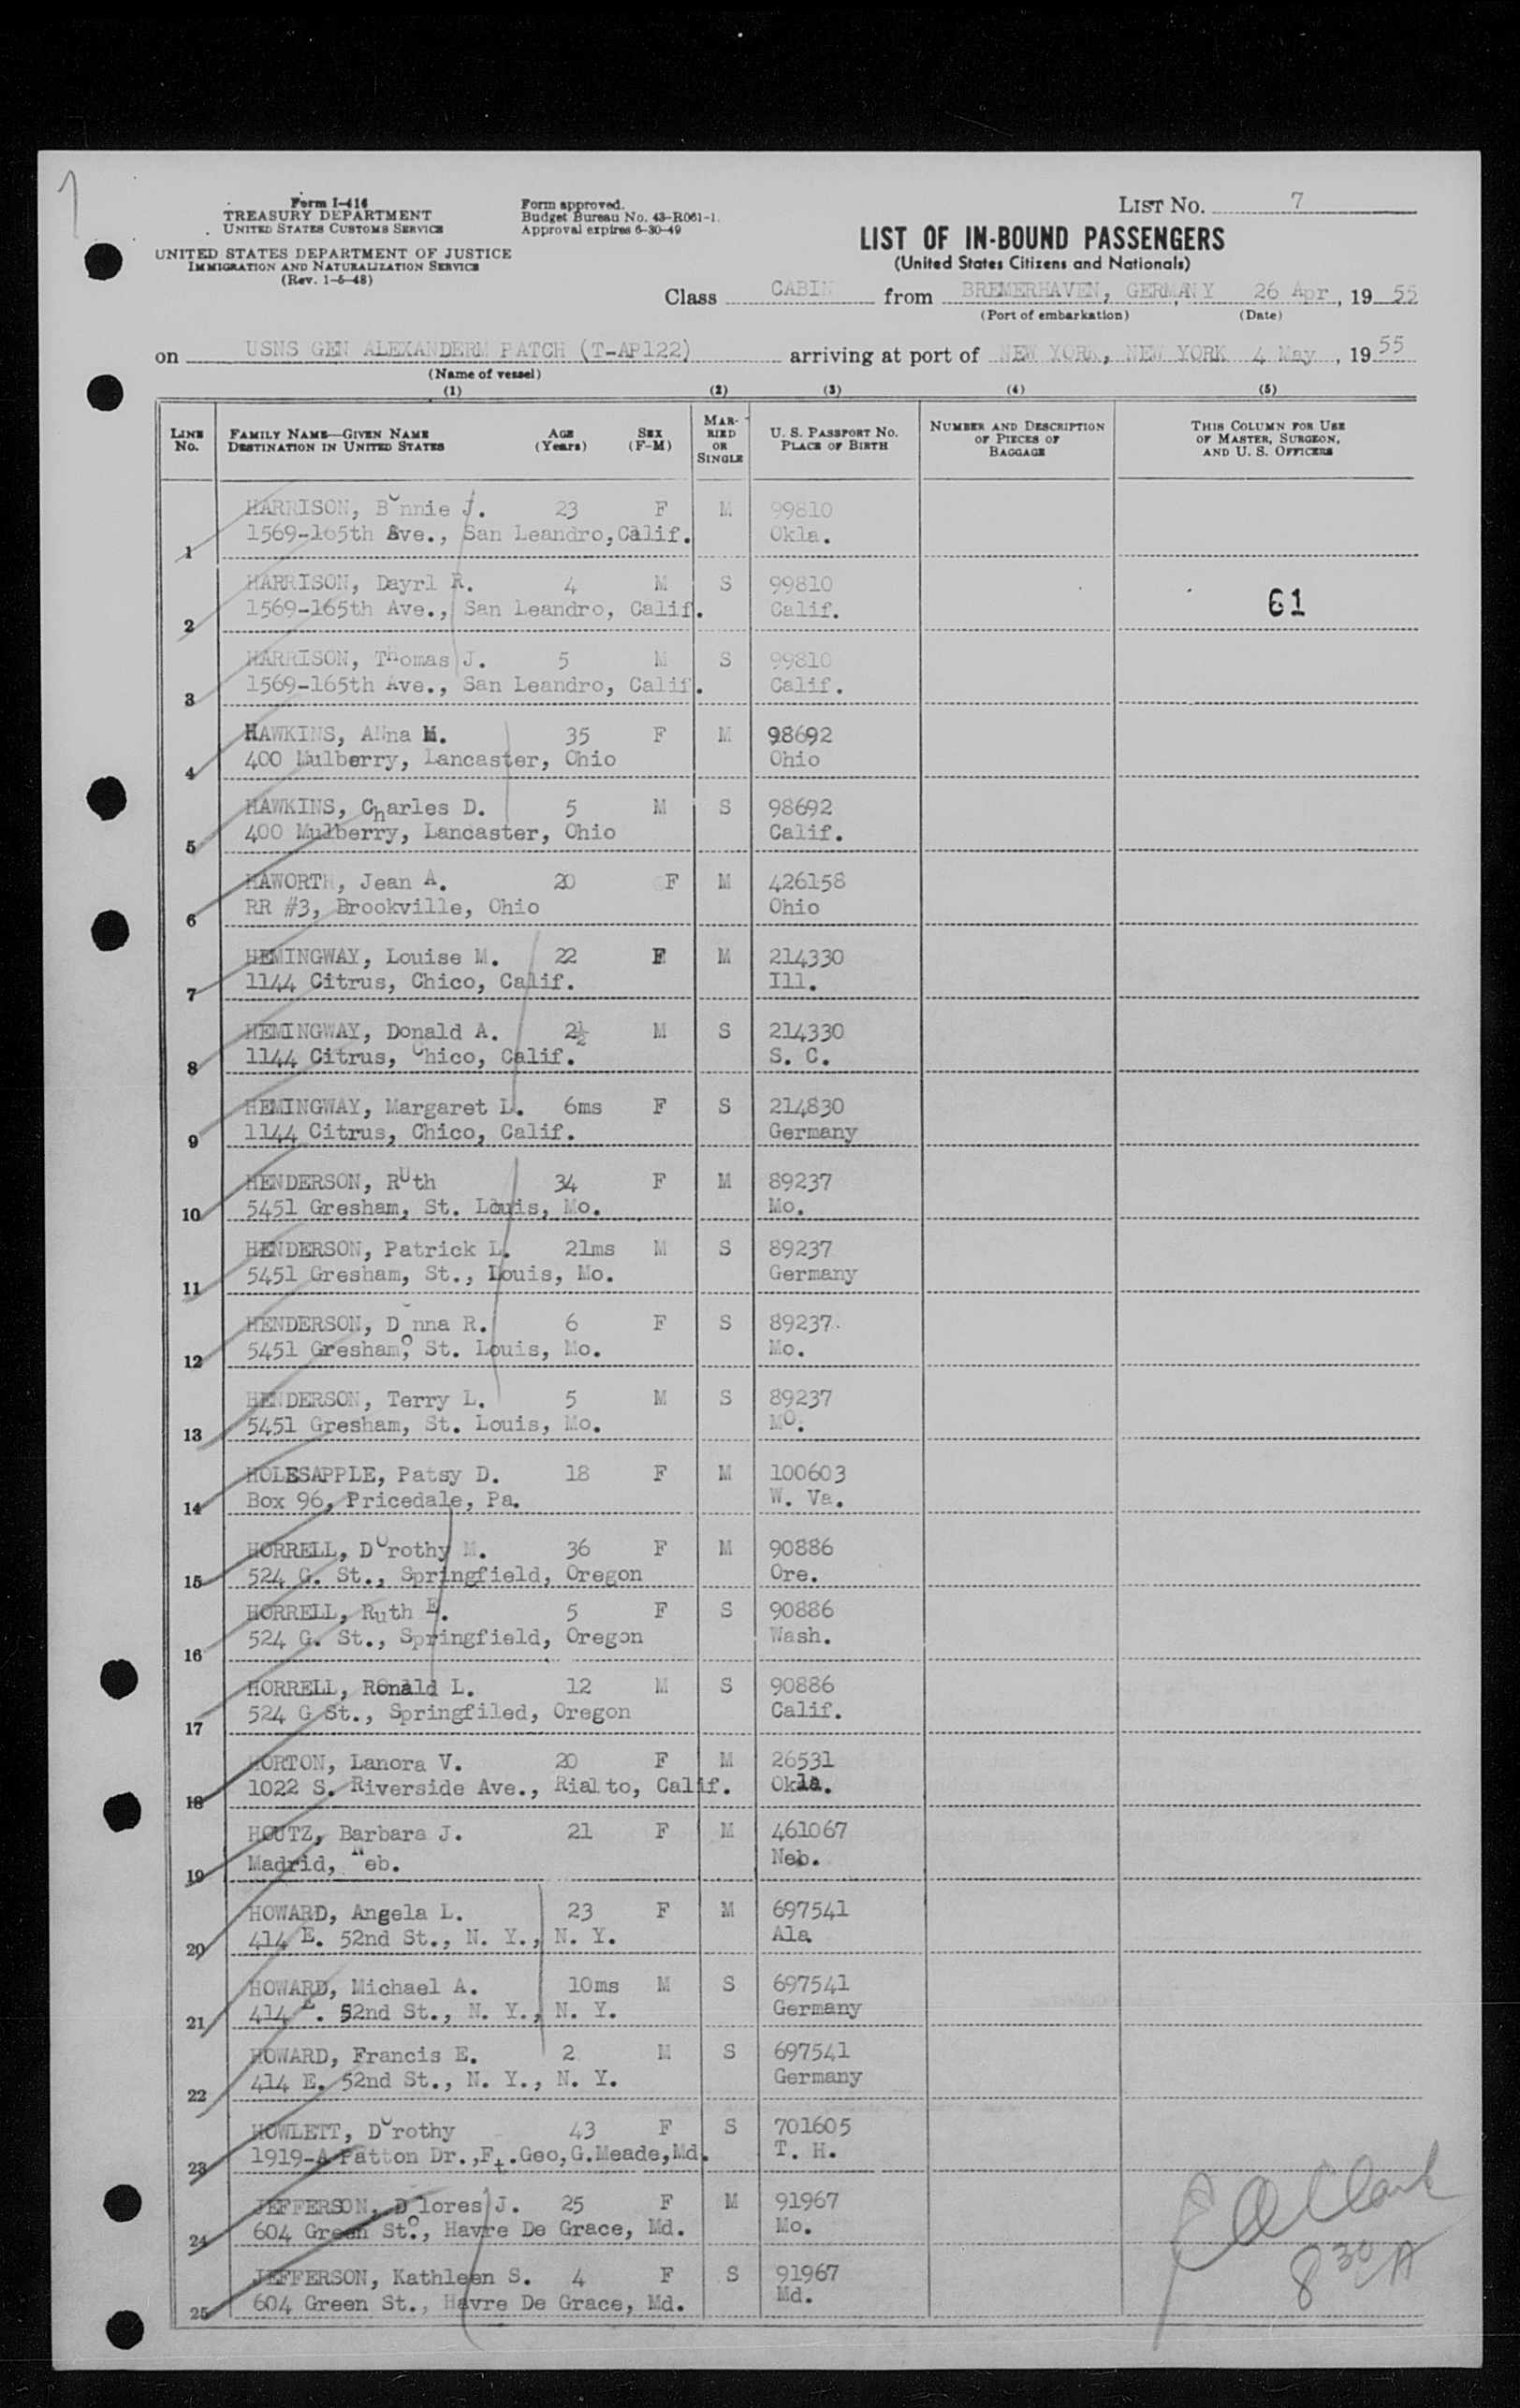 7
Form I-416
TREASURY DEPARTMENT
UNITED STATES CUSTOMS SERVICE
UNITED STATES DEPARTMENT OF JUSTICE
IMMIGRATION AND NATURALIZATION SERVICE
(Rev. 1-5-48)
Form approved.
Budget Bureau No. 43-R061-1.
Approval expires 6-30-49
LIST NO. 7
LIST OF IN-BOUND PASSENGERS
(United States Citizens and Nationals)
Class CABIN from BREMERHAVEN, GERMANY 26 Apr, 19 55
(Port of embarkation) (Date)
on USNS GEN ALEXANDERM PATCH (T-AP122) arriving at port of NEW YORK, NEW YORK 4 May, 19 55
(Name of vessel)
(1) (2) (3) (4) (5)
LINE NO. FAMILY NAME—GIVEN NAME DESTINATION IN UNITED STATES AGE (Years) SEX (F-M) MARRIED OR SINGLE U. S. PASSPORT NO. PLACE OF BIRTH NUMBER AND DESCRIPTION OF PIECES OF BAGGAGE THIS COLUMN FOR USE OF MASTER, SURGEON, AND U. S. OFFICERS
HARRISON, Bonnie J. 23 F M 99810
1 1569-165th Ave., San Leandro, Calif. Okla.
HARRISON, Dayrl R. 4 M S 99810
2 1569-165th Ave., San Leandro, Calif. Calif. 61
HARRISON, Thomas J. 5 M S 99810
3 1569-165th Ave., San Leandro, Calif. Calif.
HAWKINS, ANna M. 35 F M 98692
4 400 Mulberry, Lancaster, Ohio Ohio
HAWKINS, Charles D. 5 M S 98692
5 400 Mulberry, Lancaster, Ohio Calif.
HAWORTH, Jean A. 20 F M 426158
6 RR #3, Brookville, Ohio Ohio
HEMINGWAY, Louise M. 22 F M 214330
7 1144 Citrus, Chico, Calif. Ill.
HEMINGWAY, Donald A. 2½ M S 214330
8 1144 Citrus, Chico, Calif. S. C.
HEMINGWAY, Margaret L. 6ms F S 214830
9 1144 Citrus, Chico, Calif. Germany
HENDERSON, RUth 34 F M 89237
10 5451 Gresham, St. Louis, Mo. Mo.
HENDERSON, Patrick L. 21ms M S 89237
11 5451 Gresham, St., Louis, Mo. Germany
HENDERSON, Donna R. 6 F S 89237
12 5451 Gresham, St. Louis, Mo. Mo.
HENDERSON, Terry L. 5 M S 89237
13 5451 Gresham, St. Louis, Mo. MO.
HOLESAPPLE, Patsy D. 18 F M 100603
14 Box 96, Pricedale, Pa. W. Va.
HORRELL, Dorothy M. 36 F M 90886
15 524 G. St., Springfield, Oregon Ore.
HORRELL, Ruth E. 5 F S 90886
16 524 G. St., Springfield, Oregon Wash.
HORRELL, Ronald L. 12 M S 90886
17 524 G St., Springfiled, Oregon Calif.
HORTON, Lanora V. 20 F M 26531
18 1022 S. Riverside Ave., Rialto, Calif. Okla.
HOUTZ, Barbara J. 21 F M 461067
19 Madrid, Neb. Neb.
HOWARD, Angela L. 23 F M 697541
20 414 E. 52nd St., N. Y., N. Y. Ala
HOWARD, Michael A. 10ms M S 697541
21 414 E. 52nd St., N. Y., N. Y. Germany
HOWARD, Francis E. 2 M S 697541
22 414 E. 52nd St., N. Y., N. Y. Germany
HOWLETT, Dorothy 43 F S 701605
23 1919-A Patton Dr.,Ft.Geo,G.Meade,Md. T. H.
JEFFERSON, Dolores J. 25 F M 91967
24 604 Green St., Havre De Grace, Md. Mo.
JEFFERSON, Kathleen S. 4 F S 91967
25 604 Green St., Havre De Grace, Md. Md.
E A Clark
8 30 A